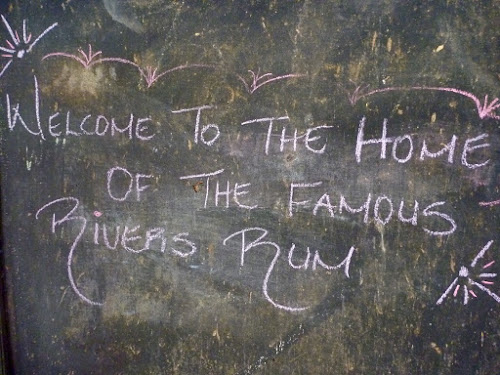 Welcome To The Home
Of The Famous
Rivers Rum